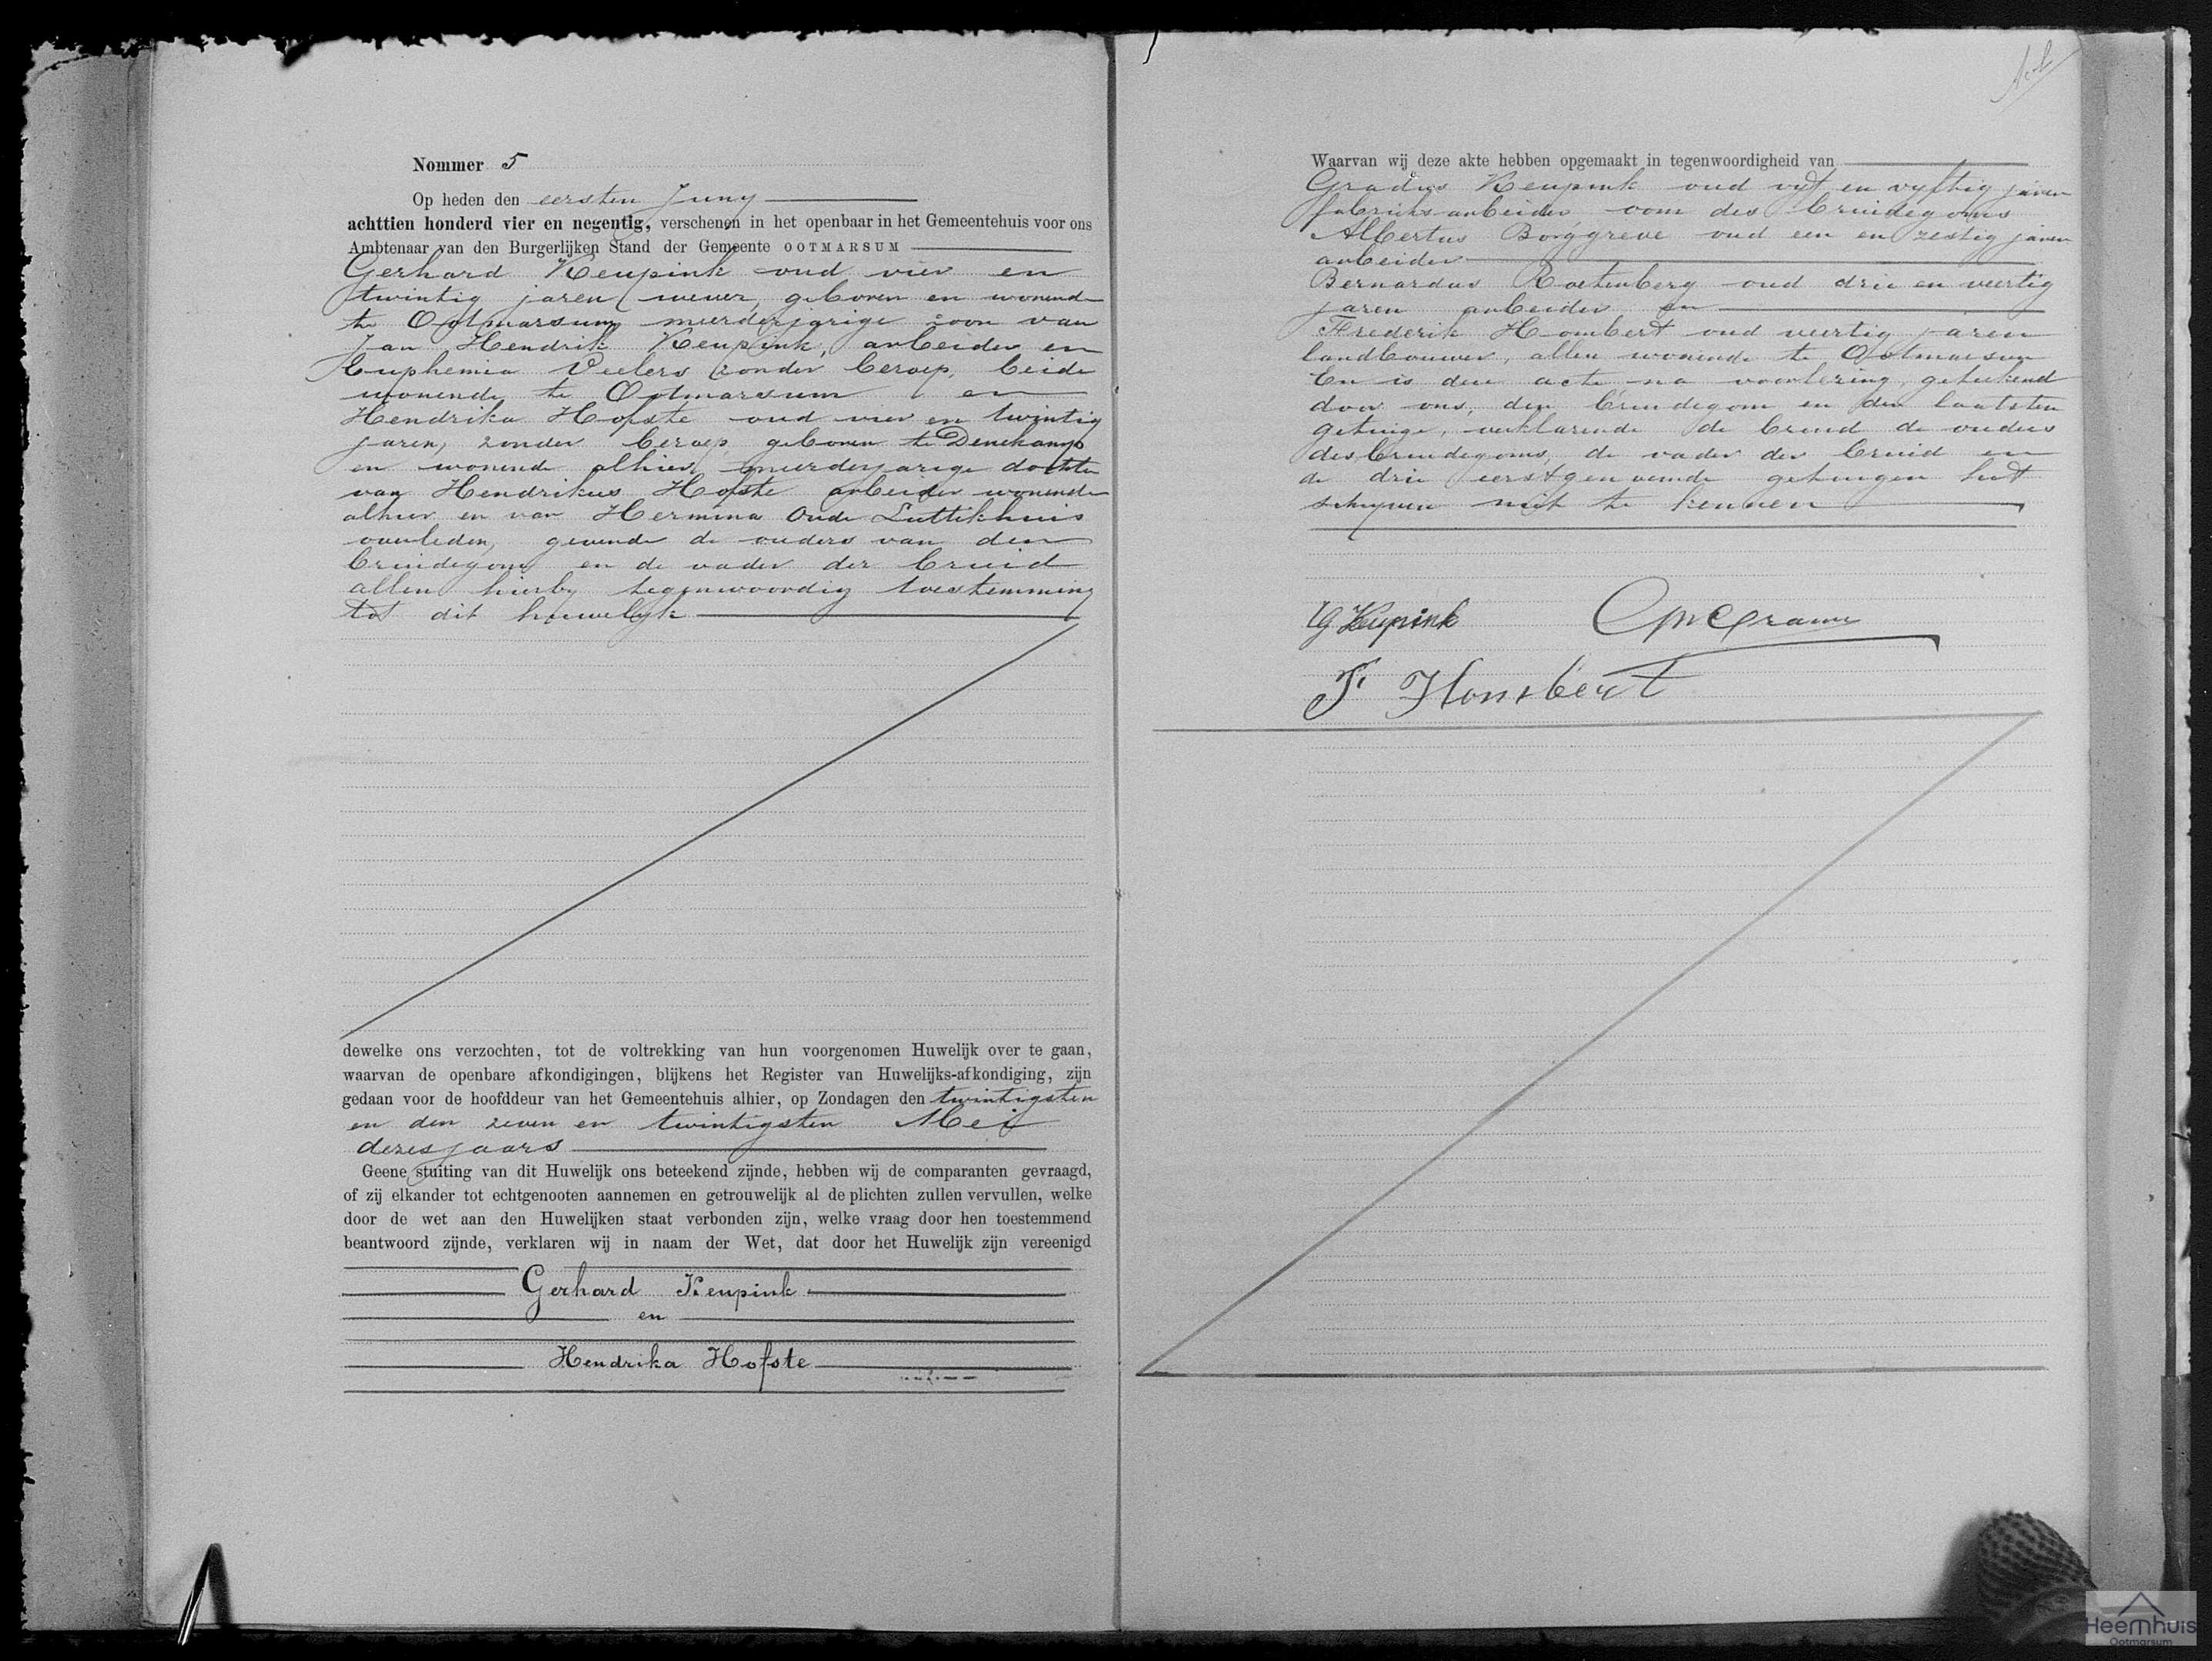 Nommer 5
Op heden den eersten Juny
achttien honderd vier en negentig, verschenen in het openbaar in het Gemeentehuis voor ons
Ambtenaar van den Burgerlijken Stand der Gemeente OOTMARSUM
Gerhard Keupink oud vier en
twintig jaren, wever, geboren en wonende
te Ootmarsum, meerderjarige zoon van
Jan Hendrik Keupink, arbeider en
Euphemia Veelers zonder beroep, beide
wonende te Ootmarsum en
Hendrika Hofste oud vier en twintig
jaren, zonder beroep, geboren te Denekamp
en wonende alhier, meerderjarige dochter
van Hendrikus Hofste arbeider wonende
alhier en van Hermina Oude Luttikhuis
overleden, gevende de ouders van den
bruidegom en de vader der bruid
allen hierby tegenwoordig toestemming
tot dit huwelyk
dewelke ons verzochten, tot de voltrekking van hun voorgenomen Huwelijk over te gaan,
waarvan de openbare afkondigingen, blijkens het Register van Huwelijks-afkondiging, zijn
gedaan voor de hoofddeur van het Gemeentehuis alhier, op Zondagen den twintigsten
en den zeven en twintigsten Mei
dezes jaars
Geene stuiting van dit Huwelijk ons beteekend zijnde, hebben wij de comparanten gevraagd,
of zij elkander tot echtgenooten aannemen en getrouwelijk al de plichten zullen vervullen, welke
door de wet aan den Huwelijken staat verbonden zijn, welke vraag door hen toestemmend
beantwoord zijnde, verklaren wij in naam der Wet, dat door het Huwelijk zijn vereenigd
Gerhard Keupink
en
Hendrika Hofste
Waarvan wij deze akte hebben opgemaakt in tegenwoordigheid van
Gradus Keupink oud vyf en vyftig jaren
fabrieks arbeider oom des bruidegoms
Albertus Borggreve oud een en zestig jaren
arbeider
Bernardus Rochenberg oud drie en veertig
jaren arbeider en
Frederik Hombert oud veertig jaren
landbouwer, allen wonende te Ootmarsum
En is deze acte na voorlezing, geteekend
door ons, den bruidegom en den laatsten
getuige, verklarende de bruid de ouders
des bruidegoms, de vader der bruid en
de drie eerstgenoemde getuigen het
schryven niet te kennen
G Keupink
F Hombert
Heemhuis
Ootmarsum